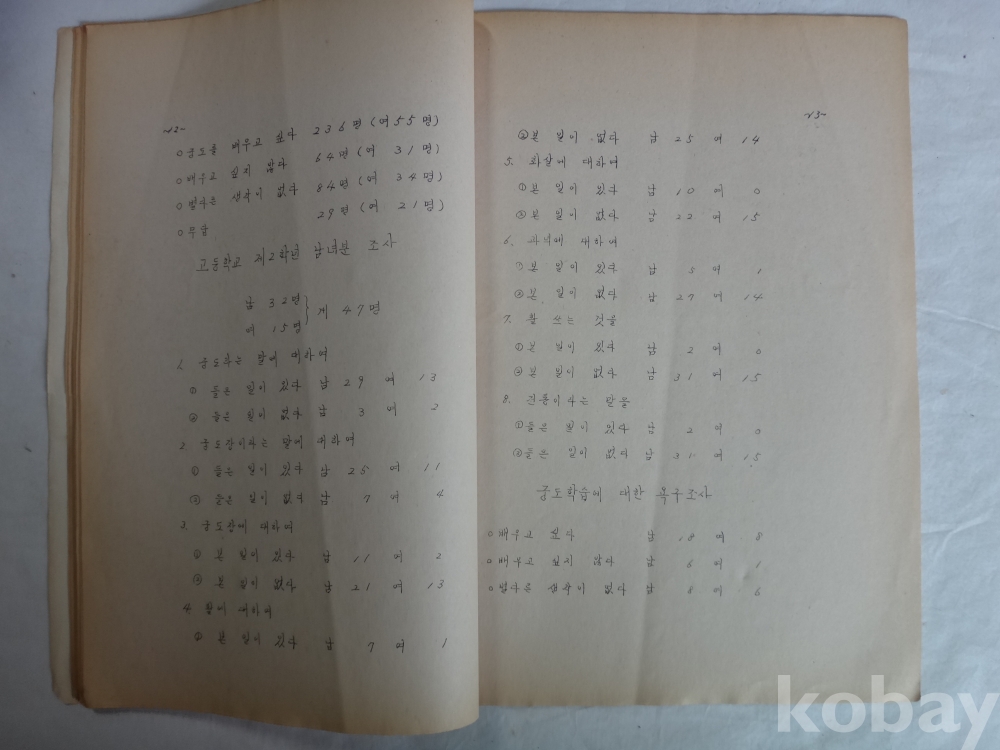 -12-
○궁도를 배우고 싶다 236명(여55명)
○배우고 싶지 않다 64명(여 31명)
○별다른 생각이 없다 84명(여 34명)
○무답 29명(여 21명)
고등학교 제2학년 남녀분 조사
남 32명
여 15명
} 계 47명
1. 궁도라는 말에 대하여
① 들은 일이 있다 남 29 여 13
② 들은 일이 없다 남 3 여 2
2. 궁도장이라는 말에 대하여
① 들은 일이 있다 남 25 여 11
② 들은 일이 없다 남 7 여 4
3. 궁도장에 대하여
① 본 일이 있다 남 11 여 2
② 본 일이 없다 남 21 여 13
4. 활에 대하여
① 본 일이 있다 남 7 여 1
-13-
②본 일이 없다 남 25 여 14
5. 화살에 대하여
①본 일이 있다 남 10 여 0
②본 일이 없다 남 22 여 15
6. 과녁에 대하여
①본 일이 있다 남 5 여 1
②본 일이 없다 남 27 여 14
7. 활 쏘는 것을
①본 일이 있다 남 2 여 0
②본 일이 없다 남 31 여 15
8. 이라는 말을
①들은 일이 있다 남 2 여 0
②들은 일이 없다 남 31 여 15
궁도학습에 대한 욕구조사
○배우고 싶다 남 18 여 8
○배우고 싶지 않다 남 6 여 1
○별다른 생각이 없다 남 8 여 6
kobay